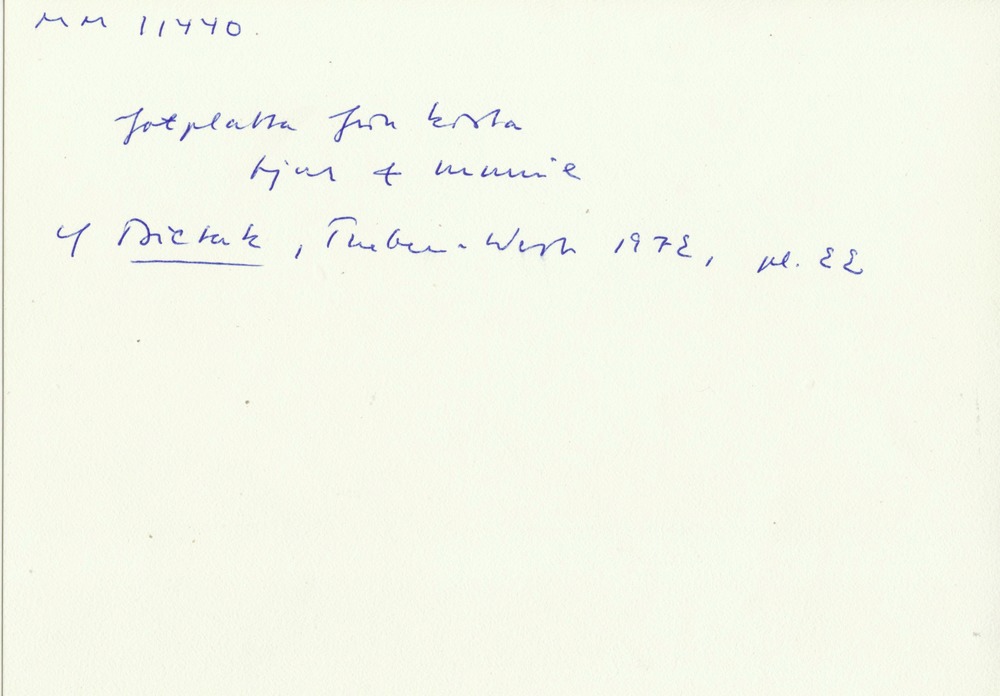 MM 11440.
fotplatta från kista
tjur + mumie
cf Bietak, Theben-West 1972, pl. 22